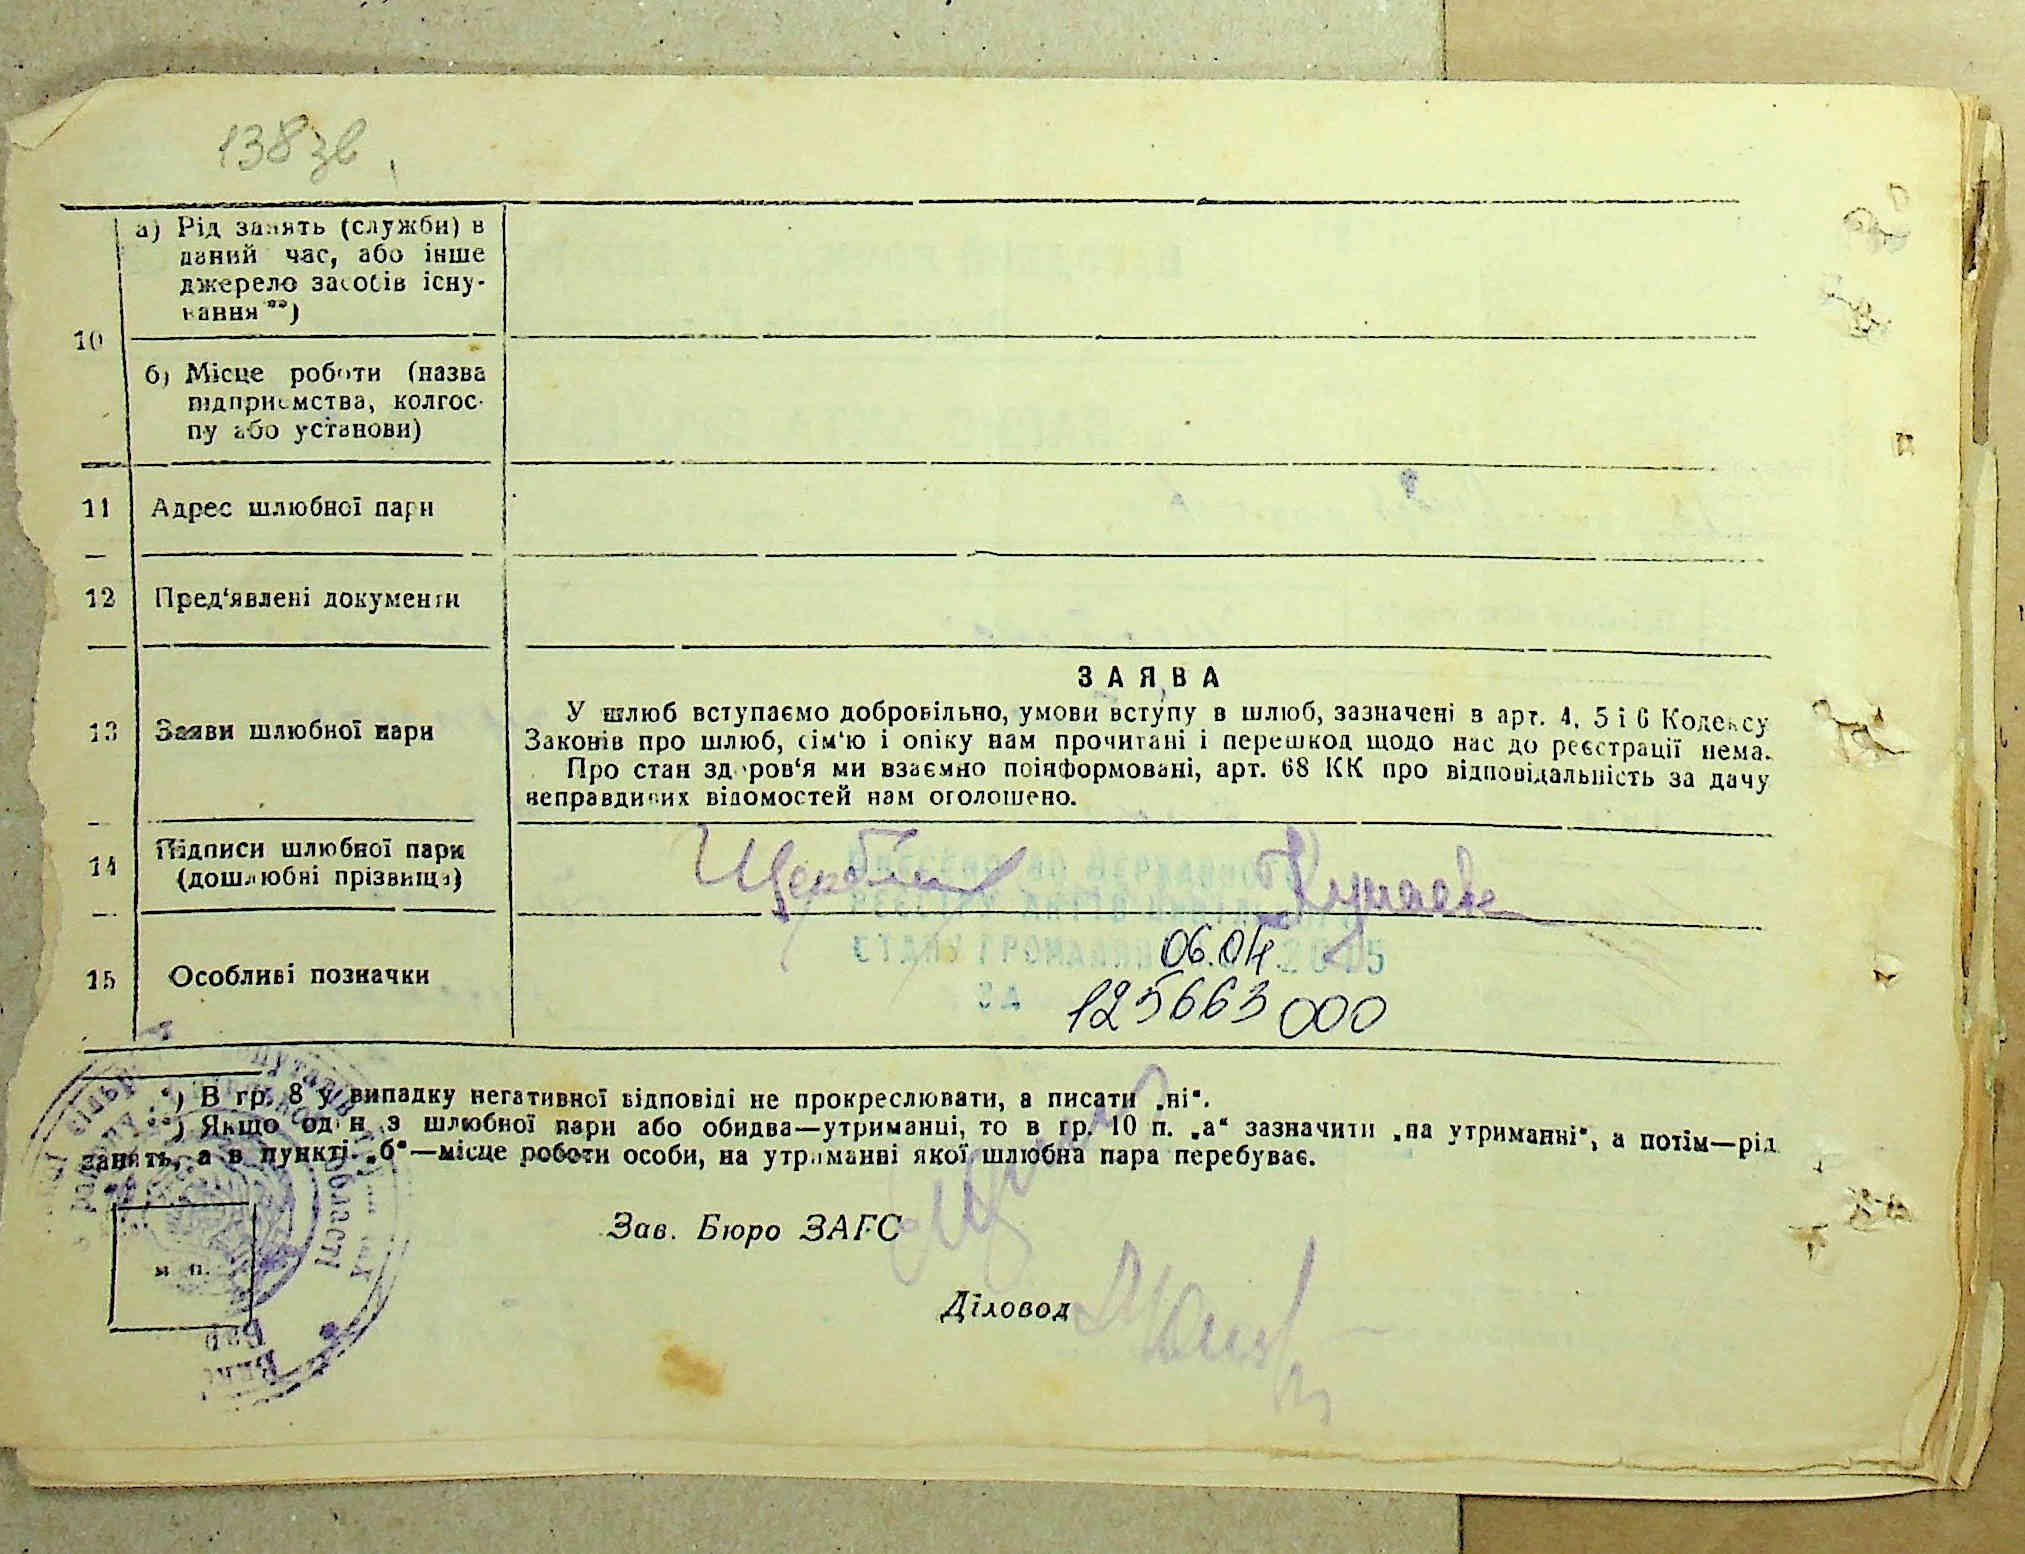 138 зв
10 а) Рід занять (служби) в
даний час, або інше
джерело засобів існу-
вання **)
б) Місце роботи (назва
підприємства, колгос-
пу або установи)
11 Адрес шлюбної пари
12 Пред‘явлені документи
13 Заяви шлюбної пари
ЗАЯВА
У шлюб вступаємо добровільно, умови вступу в шлюб, зазначені в арт. 4, 5 і 6 Кодексу
Законів про шлюб, сім‘ю і опіку нам прочитані і перешкод щодо нас до реєстрації нема.
Про стан здоров‘я ми взаємно поінформовані, арт. 68 КК про відповідальність за дачу
неправдивих відомостей нам оголошено.
14 Підписи шлюбної пари
(дошлюбні прізвища)
ВНЕСЕНО ДО ДЕРЖАВНОГО
РЕЄСТРУ АКТІВ ЦИВІЛЬНОГО
СТАНУ ГРОМАДЯН 06.04.2015
ЗА 125663000
15 Особливі позначки
*) В гр. 8 у випадку негативної відповіді не прокреслювати, а писати „ні“.
**) Якщо один з шлюбної пари або обидва—утриманці, то в гр. 10 п. „а“ зазначити „на утриманні“, а потім—рід
занять, а в пункті „б“—місце роботи особи, на утриманні якої шлюбна пара перебуває.
Зав. Бюро ЗАГС
м. п.
Діловод